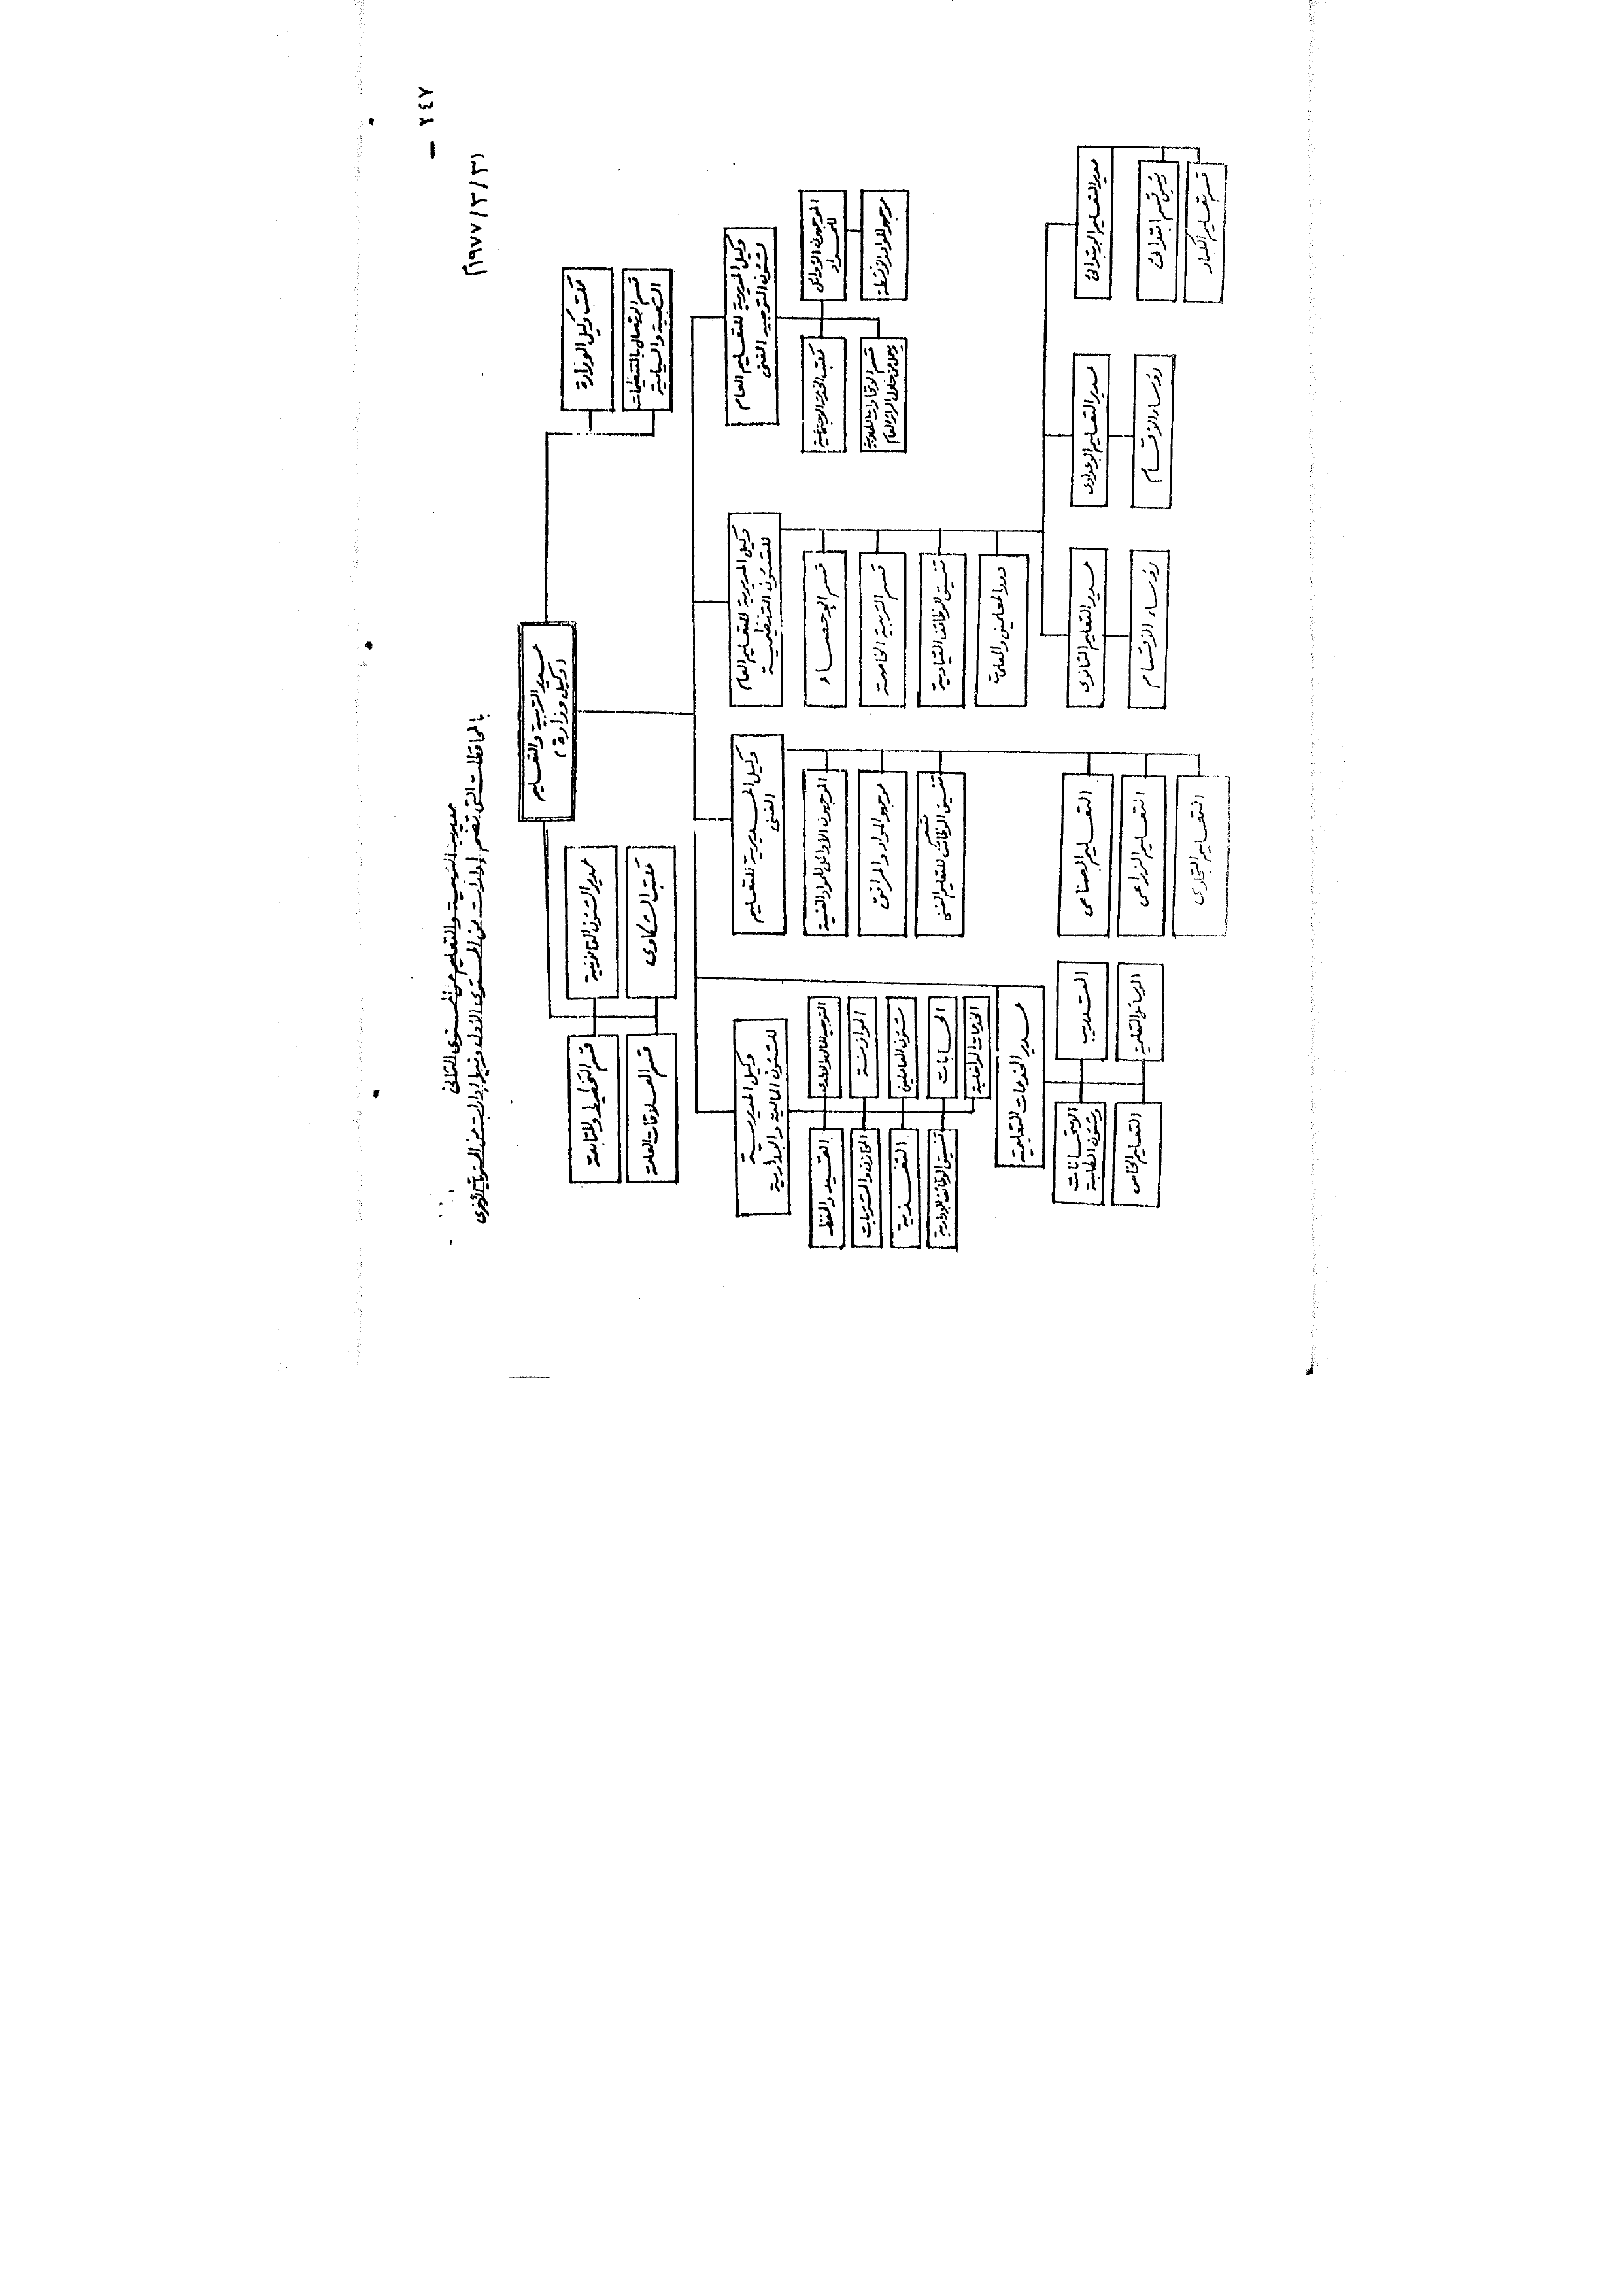 — ٢٤٧
(١٩٧٧/٣/٣١
مديرية التربية والتعليم من المستوى الثانى
بالمحافظات التى تضم إدارات من المستوى الأول
مدير التربية والتعليم
(وكيل وزارة)
مكتب وكيل الوزارة
قسم الاتصال بالتنظيمات
الشعبية والسياسية
مدير الشئون القانونية
مكتب الشكاوى
قسم التخطيط والمتابعة
قسم العلاقات العامة
وكيل المديرية للتعليم العام
لشئون التوجيه الفنى
الموجهون الأوائل
للمواد
مكتب الخدمة الاجتماعية
وكيل المديرية للتعليم العام
للشئون التنظيمية
قسم الإحصاء
قسم التربية الخاصة
تنسيق الوظائف القيادية
دور المعلمين والمعلمات
مدير التعليم الابتدائى
رئيس قسم ابتدائى
قسم تعليم الكبار
مدير التعليم الإعدادى
رؤساء الأقسام
مدير التعليم الثانوى
رؤساء الأقسام
وكيل المديرية للتعليم
الفنى
الموجهون الأوائل للمواد الفنية
موجهو المواد والمرافق
قسم
تنسيق الوظائف للتعليم الفنى
التعليم الصناعى
التعليم الزراعى
التعليم التجارى
وكيل المديرية
للشئون المالية والإدارية
التوجيه المالى والإدارى
الموازنة
شئون العاملين
الحسابات
الخدمات الداخلية
القيد والحفظ
المخازن والمشتريات
التغذية
تنسيق الوظائف الإدارية
مدير الخدمات التعليمية
التدريب
الوسائل التعليمية
الامتحانات
وشئون الطلبة
التعليم الخاص